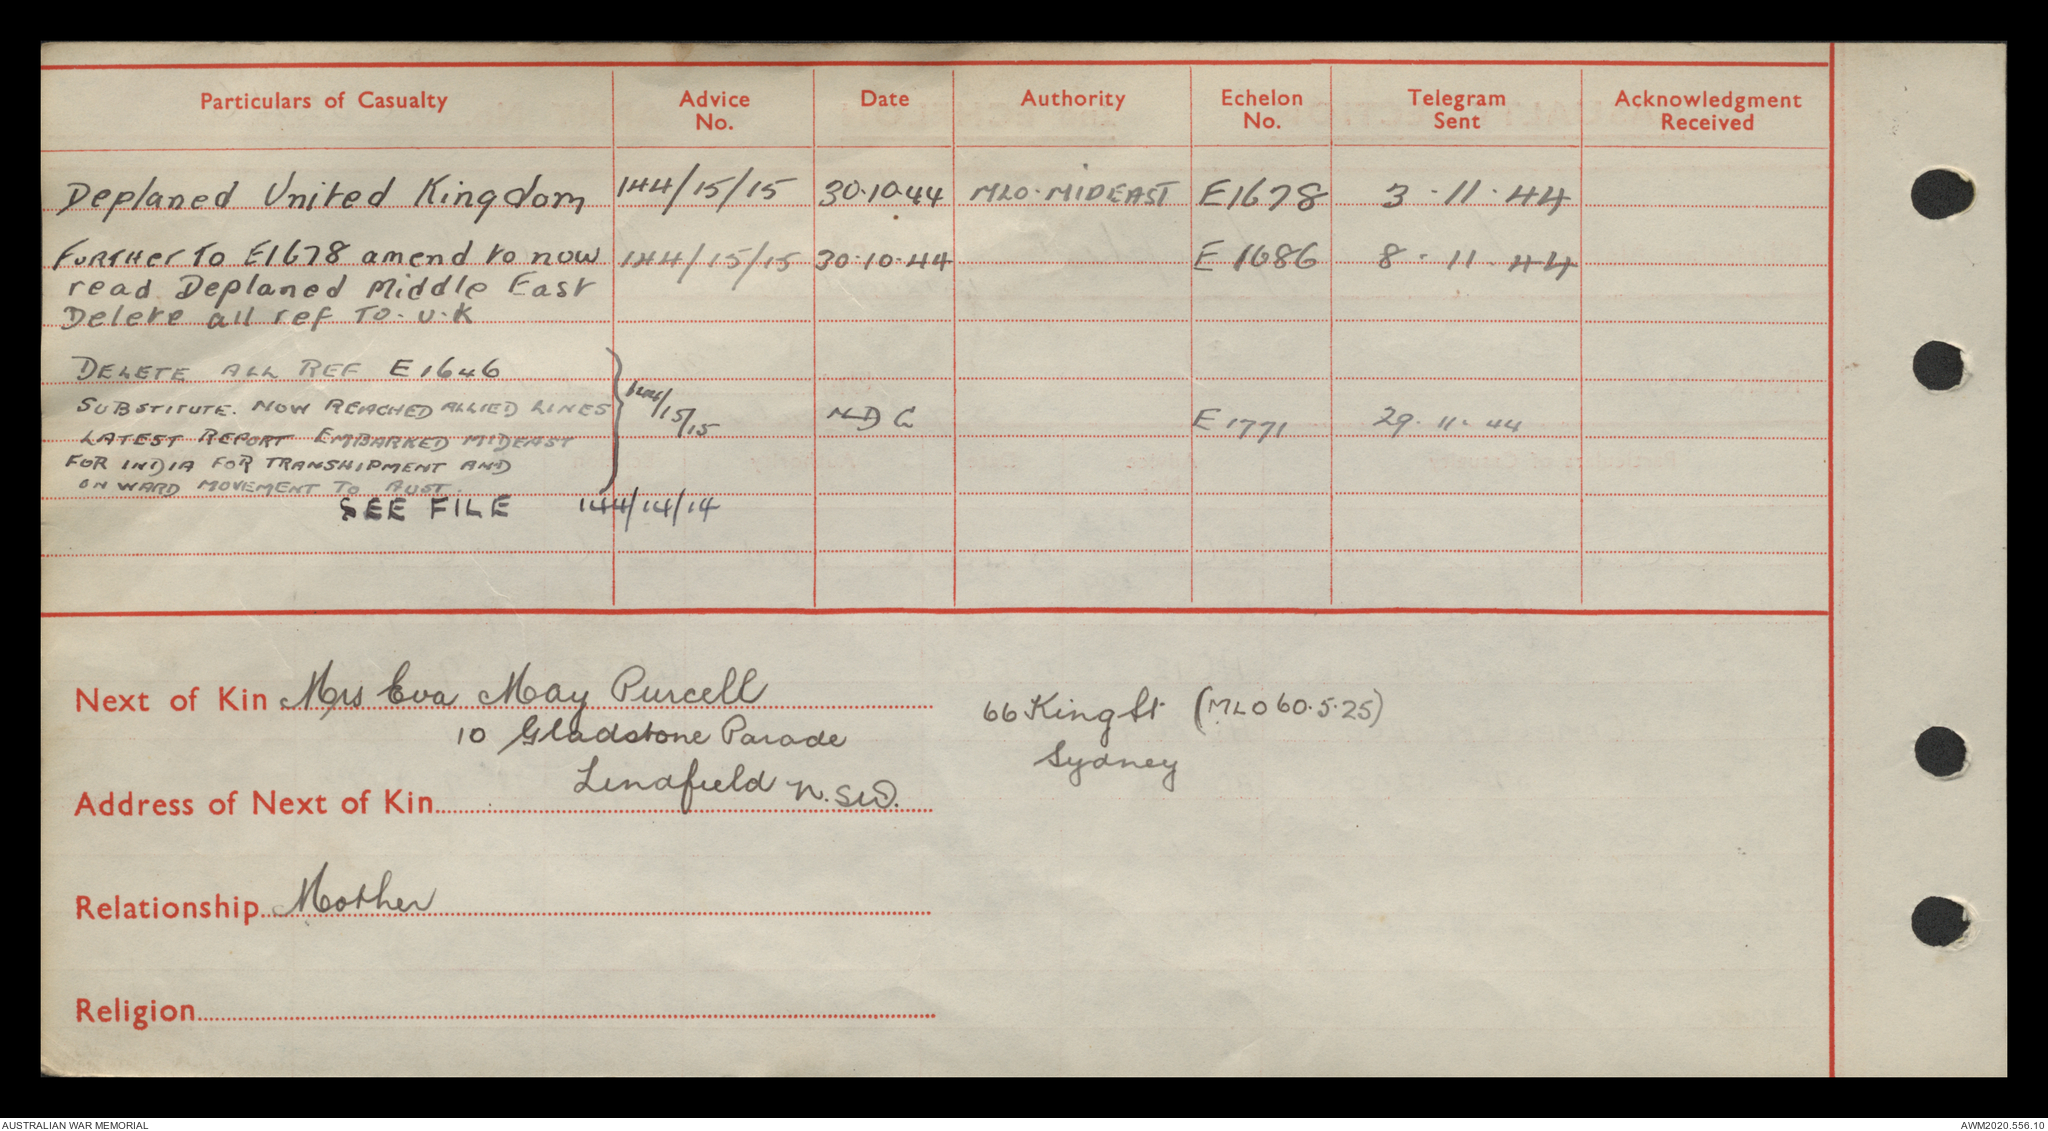 Particulars of Casualty Advice No. Date Authority Echelon No. Telegram Sent Acknowledgment Received
Deplaned United Kingdom 144/15/15 30.10.44 MLO. MIDEAST E1678 3.11.44
FURTHER TO E1678 amend to now 144/15/15 30.10.44 E1686 8.11.44
read Deplaned Middle East
Delete all ref TO. U.K
DELETE ALL REF E1646
SUBSTITUTE. NOW REACHED ALLIED LINES 144/15/15 E1771 29.11.44
LATEST REPORT EMBARKED MIDEAST
FOR INDIA FOR TRANSHIPMENT AND
ONWARD MOVEMENT TO AUST.
SEE FILE 144/14/14
Next of Kin Mrs Eva May Purcell
10 Gladstone Parade
Lindfield N.S.W.
66 King St (MLO 60.5.25)
Sydney
Address of Next of Kin
Relationship Mother
Religion
AUSTRALIAN WAR MEMORIAL AWM2020.556.10